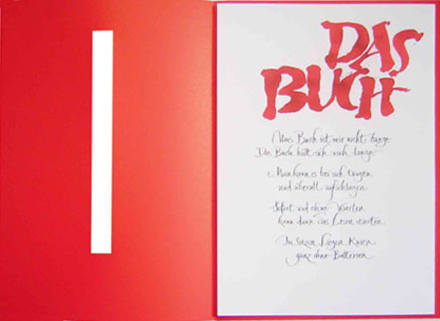 DAS
BUCH
Ums Buch ist mir nicht bange
Das Buch hält sich noch lange
Man kann es bei sich tragen
und überall aufschlagen
Sofort und ohne Warten
kann dann das Lesen starten
Im Sitzen Liegen Knien
ganz ohne Batterien